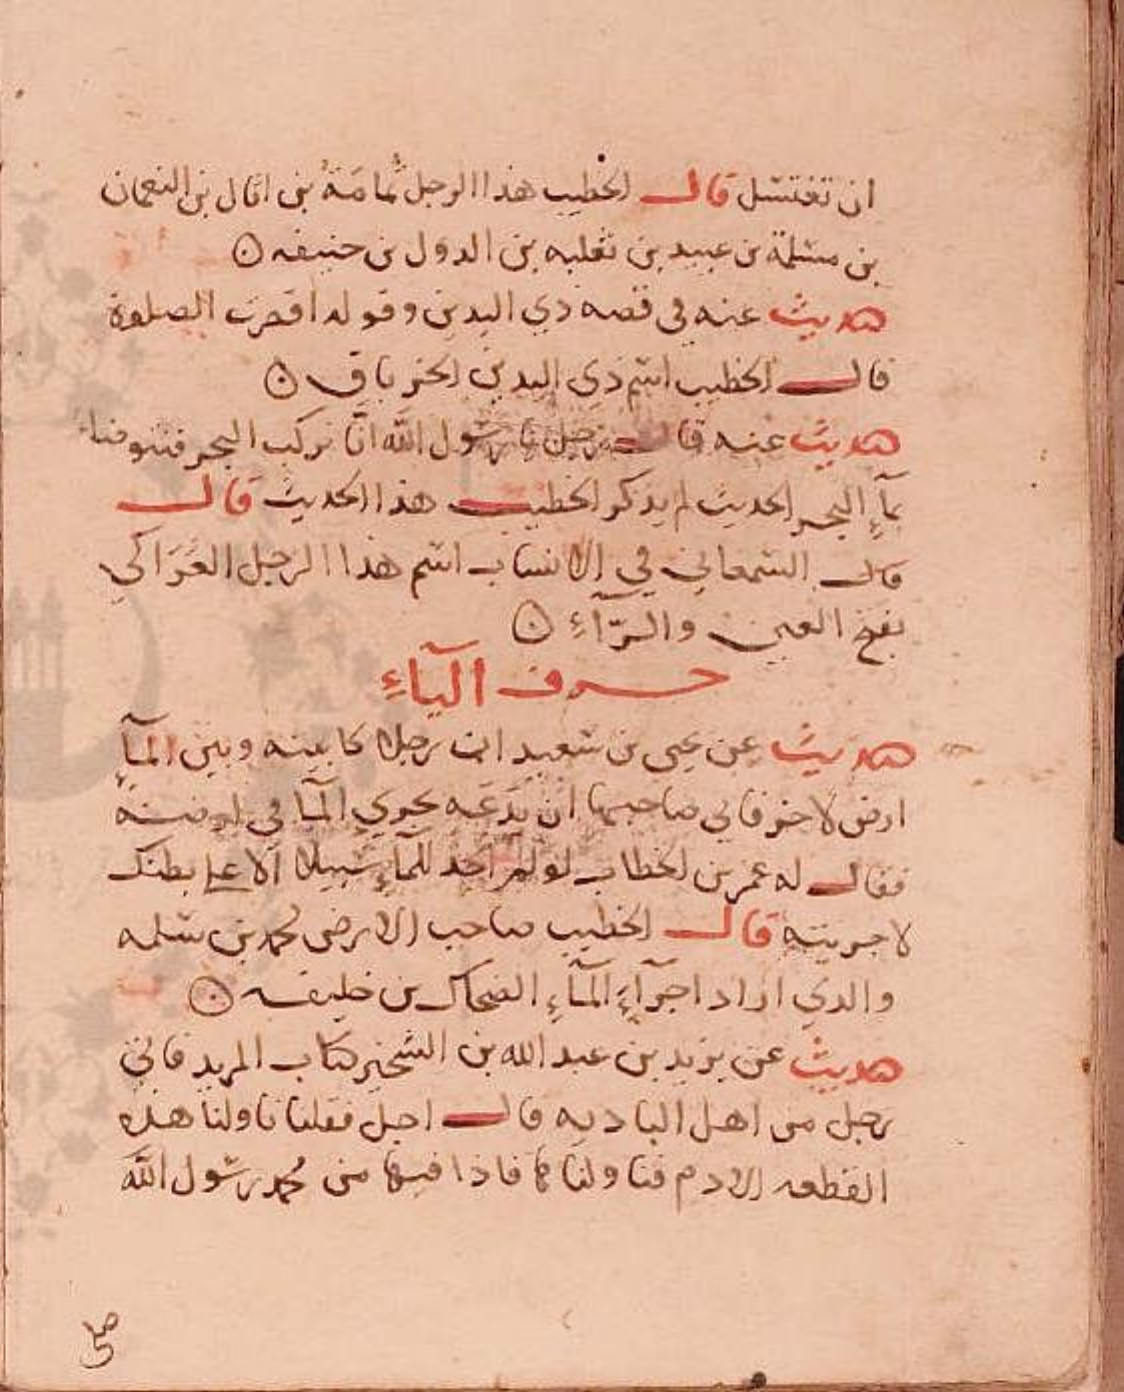 ان تغتسل قال الخطيب هذا الرجل ثُمامَةُ بن اثال بن النعمان
بن مسلمة بن عبيد بن ثعلبه بن الدول بن حنيفه ه
حديث عنه في قصه ذي اليدين وقوله اقصرت الصلوة
قال الخطيب اسم ذي اليدين الخرباق ه
حديث عنه قال رجل يا رسول الله انّا نركب البحر فنتوضاء
بمآءِ البحر الحديث لم يذكر الخطيب هذا الحديث قال
قال السمعاني في الانساب اسم هذا الرجل العَرَاكي
بفتح العين والرّآءِ ه
حرف اليآءِ
حديث عن يحيى بن سعيد ان رجلا كا بينه وبين المآءِ
ارض لاخر فابي صاحبها ان يَدَعَه يجري المآ في ارضه
فقال له عمر بن الخطاب لو لم اجد للمآءِ سبيلا الا على بطنك
لاجريته قال الخطيب صاحب الارض محمد بن سلمه
والذي اراد اجرآءَ المآءِ الضحاك بن خليفه ه
حديث عن يزيد بن عبد الله بن الشخير كتاب المربد فاتى
رجل من اهل الباديه قال اجل فقلنا ناولنا هذه
القطعه الادم فناولناها فاذا فيها من محمد رسول الله
صلى